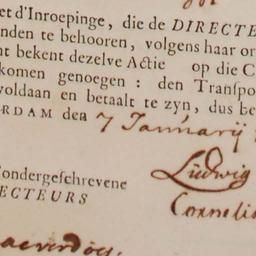 et d'Inroepinge, die de DIRECTE
nden te behooren, volgens haar or
nt bekent dezelve Actie op die C
komen genoegen: den Transpo
voldaan en betaalt te zyn, dus be
RDAM den 7 Januarij
Ludwig
ondergeschrevene
Cornelis
ECTEURS